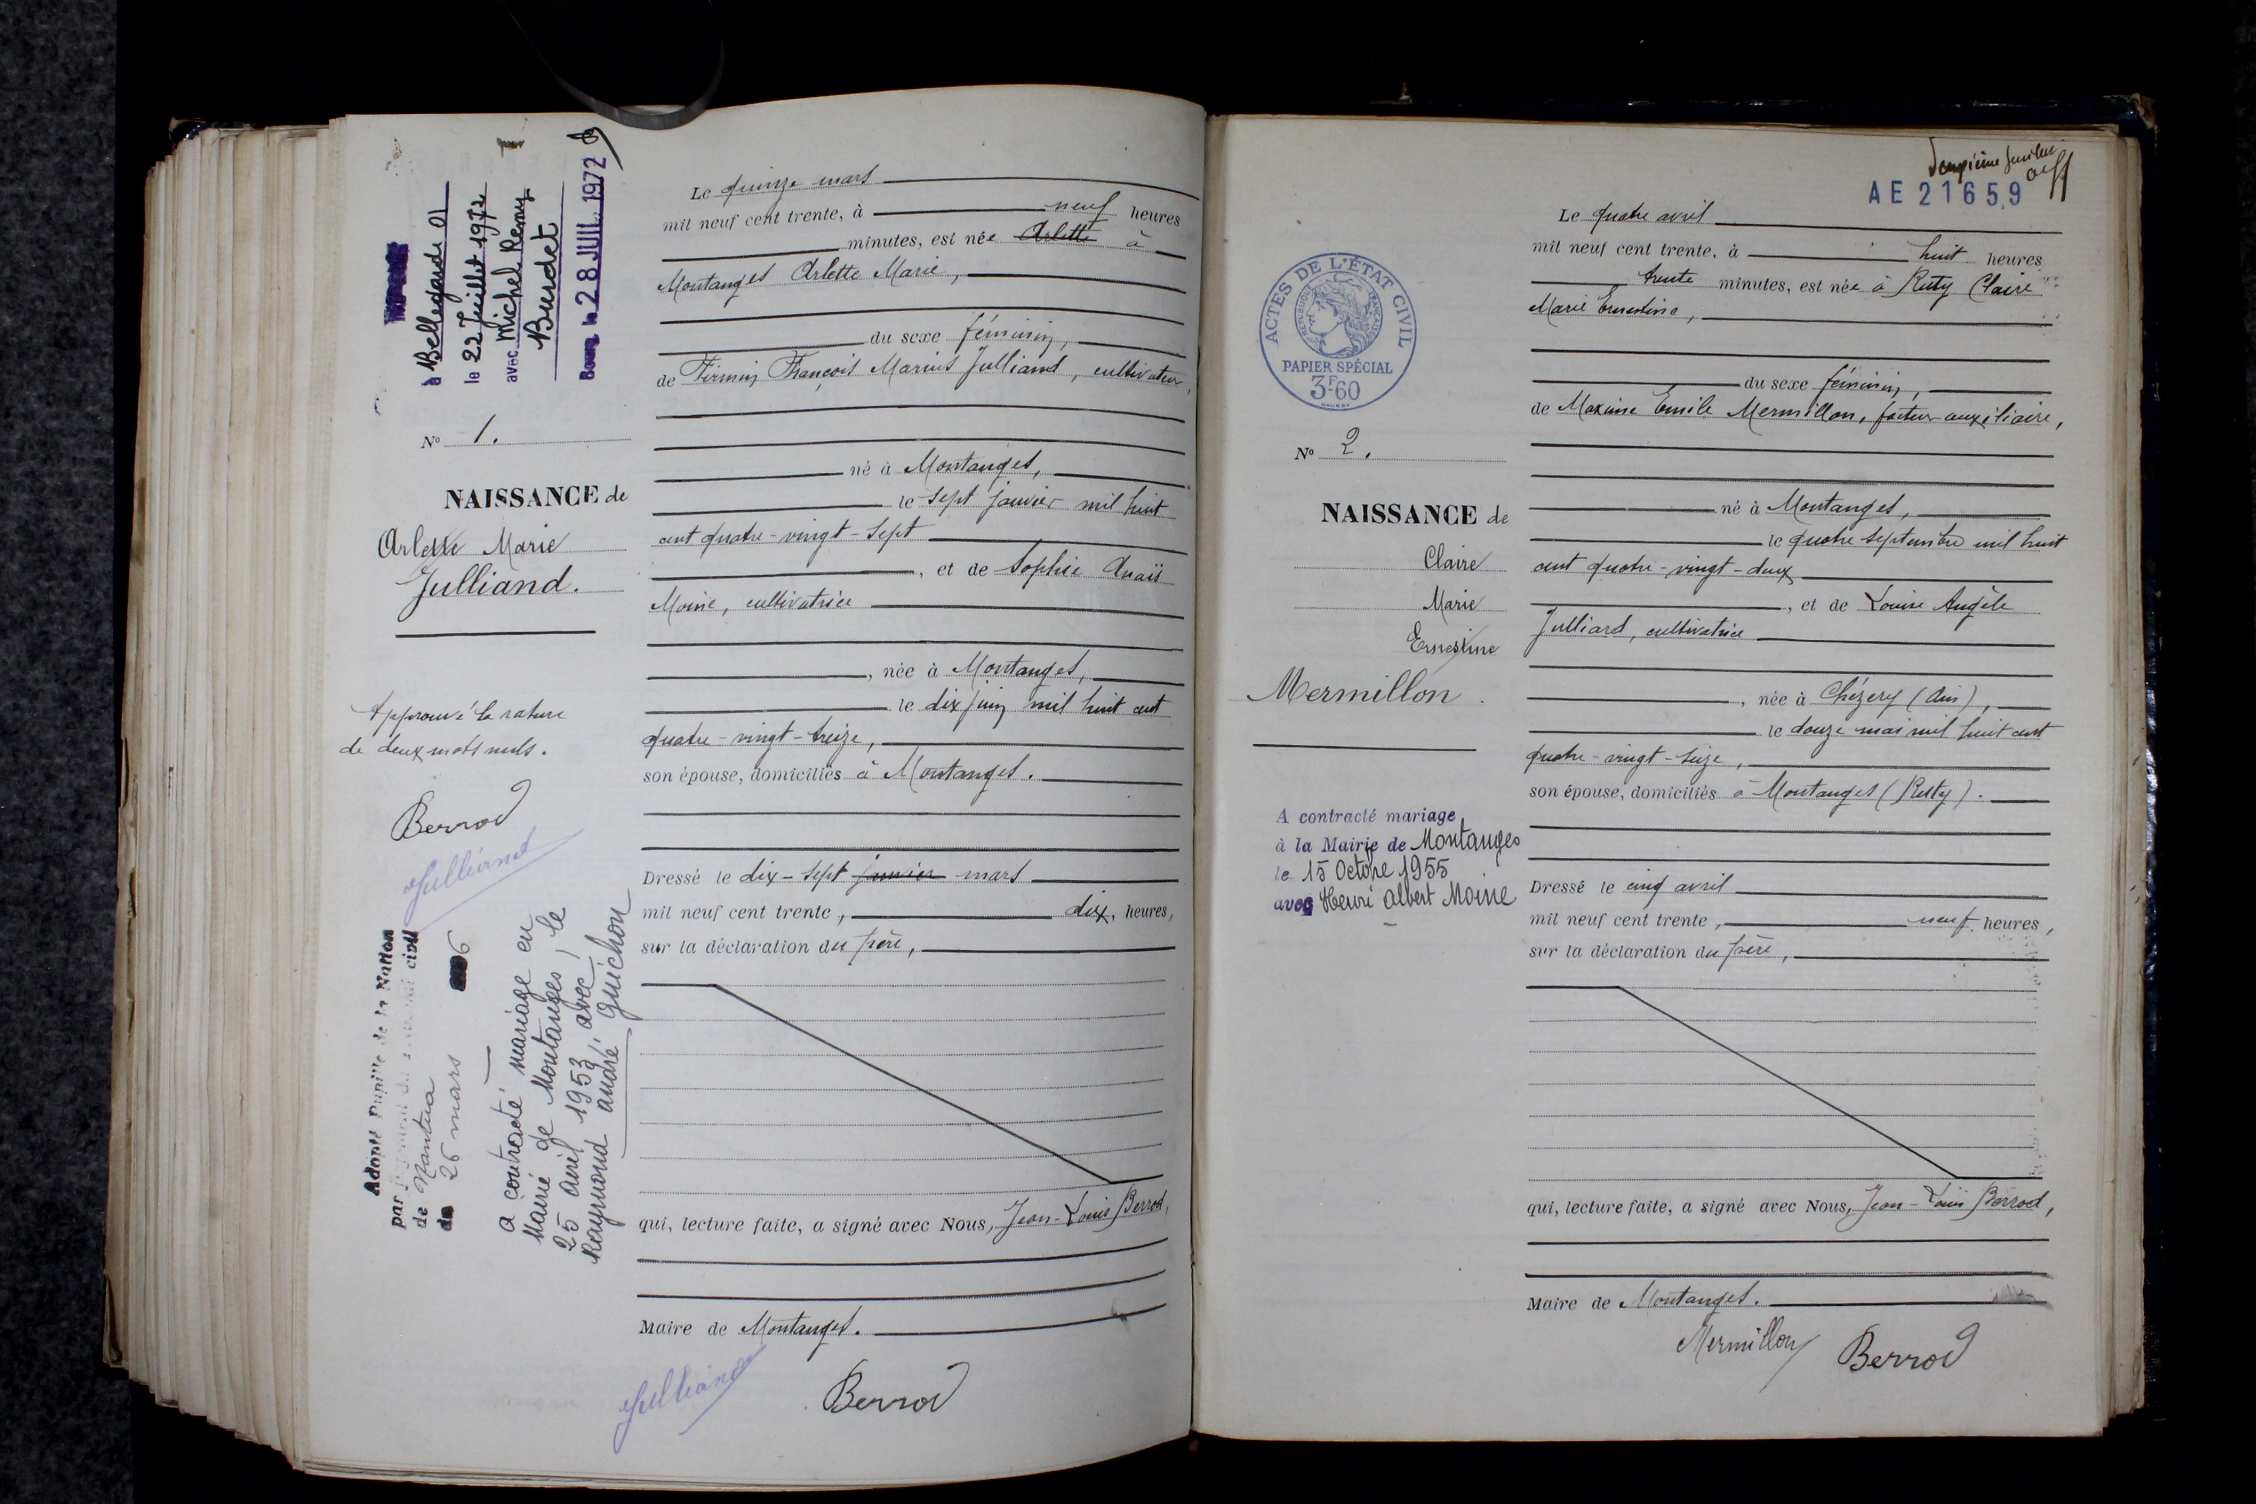 à Bellegarde 01
le 22 Juillet 1972
avec Michel Remy
Burdet
Bourg, le 28 JUIL. 1972
N° 1.
NAISSANCE de
Arlette Marie
Julliand.
Approuvé la rature
de deux mots nuls.
Berrod
Julliand
Adopté Pupille de la Nation
par jugement du civil
de Nantua
du 26 mars
a contracté mariage en
Mairie de Montanges, le
25 avril 1953, avec
Raymond André Guichon
Le quinze mars
mil neuf cent trente, à neuf heures
minutes, est née Arlette à
Montanges Arlette Marie,
du sexe féminin,
de Firmin François Marius Julliand, cultivateur,
né à Montanges,
le sept janvier mil huit
cent quatre-vingt-sept
, et de Sophie Anaïs
Moine, cultivatrice
, née à Montanges,
le dix juin mil huit cent
quatre-vingt-treize,
son épouse, domiciliés à Montanges.
Dressé le dix-sept janvier mars
mil neuf cent trente, dix, heures,
sur la déclaration du père,
qui, lecture faite, a signé avec Nous, Jean-Louis Berrod,
Maire de Montanges.
Julliand Berrod
AE 21659
ACTES DE L'ÉTAT CIVIL
RÉPUBLIQUE FRANÇAISE
PAPIER SPÉCIAL
3F60
N° 2.
NAISSANCE de
Claire
Marie
Ernestine
Mermillon.
A contracté mariage
à la Mairie de Montanges
le 15 Octobre 1955
avec Henri Albert Moine
Le quatre avril
mil neuf cent trente, à huit heures
trente minutes, est née à Ruty Claire
Marie Ernestine,
du sexe féminin,
de Maxime Emile Mermillon, facteur auxiliaire,
né à Montanges,
le quatre septembre mil huit
cent quatre-vingt-deux
, et de Louise Angèle
Julliard, cultivatrice
, née à Chézery (Ain),
le douze mai mil huit cent
quatre-vingt-seize,
son épouse, domiciliés à Montanges (Ruty).
Dressé le cinq avril
mil neuf cent trente, neuf heures,
sur la déclaration du père,
qui, lecture faite, a signé avec Nous, Jean-Louis Berrod,
Maire de Montanges.
Mermillon Berrod